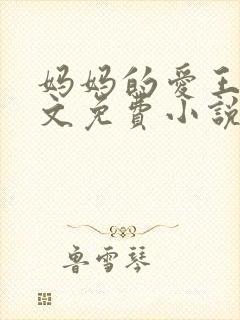 妈妈的爱王
文免費小説
鲁雪琴